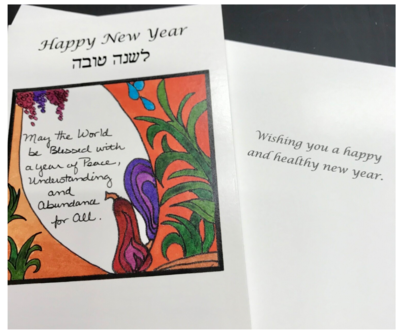 Happy New Year
לשנה טובה
May the World
be Blessed with
a year of Peace,
Understanding
and
Abundance
for All.
Wishing you a happy
and healthy new year.